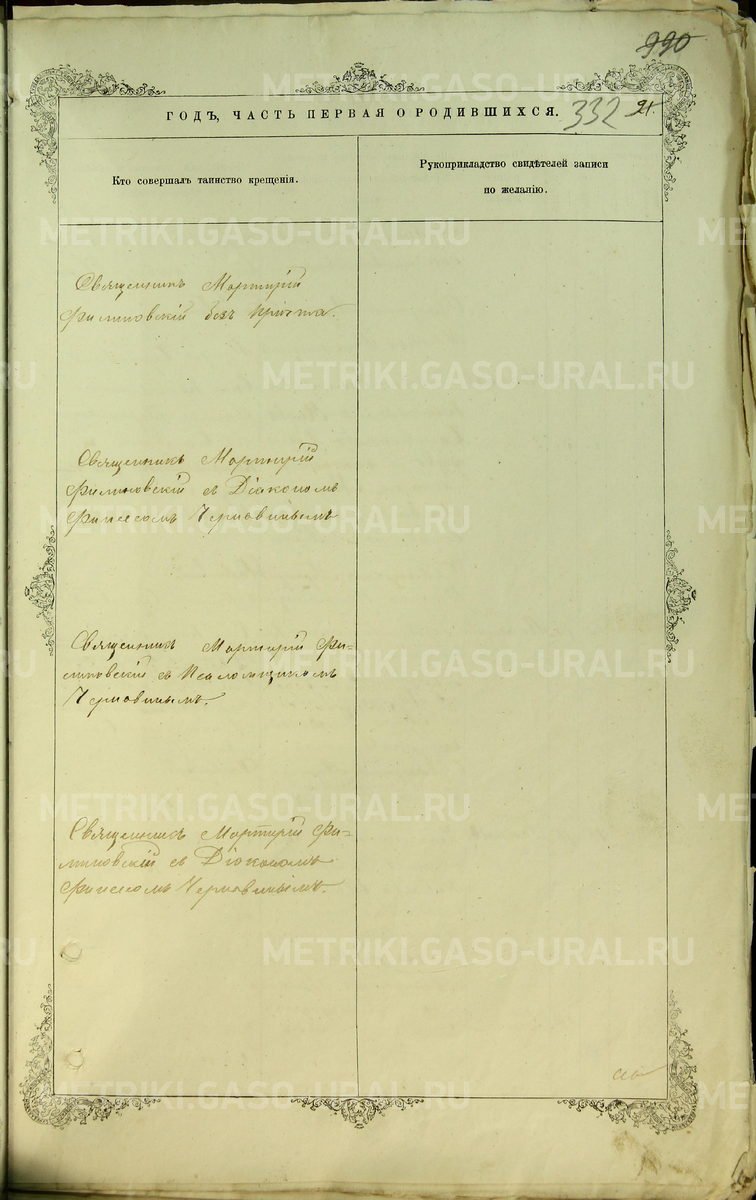 990
ГОДЪ, ЧАСТЬ ПЕРВАЯ О РОДИВШИХСЯ. 332 21.
Кто совершалъ таинство крещенія.
Рукоприкладство свидѣтелей записи
по желанію.
Священникъ Мартирій
Филиповскій безъ причта.
Священникъ Мартирій
Филиповскій съ Діакономъ
Финеесомъ Черновинымъ
Священникъ Мартирій Фи-
липовскій съ Псаломщикомъ
Черновинымъ.
Священникъ Мартирій Фи-
липовскій съ Діакономъ
Финеесомъ Черновинымъ.
METRIKI.GASO-URAL.RU